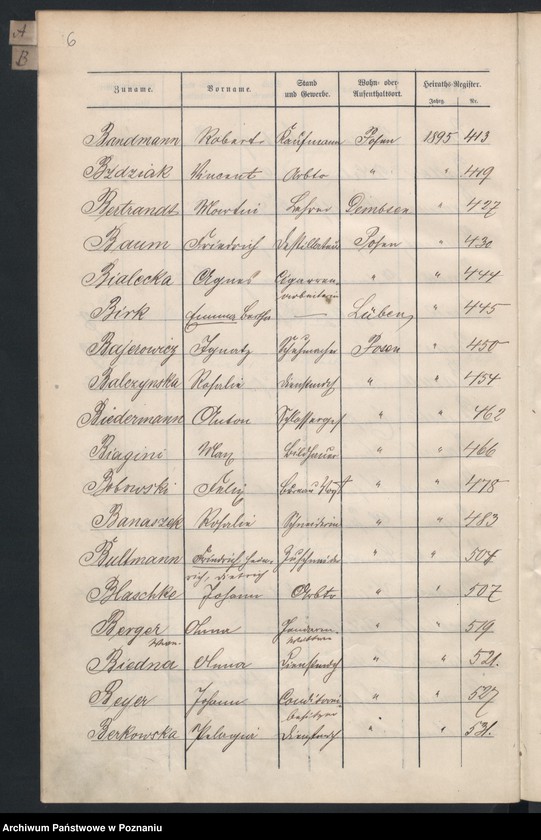 A
B
6
Zuname. Vorname. Stand und Gewerbe. Wohn- oder Aufenthaltsort. Heiraths-Register.
Jahrg. Nr.
Bandmann Robert Kaufmann Posen 1895 413
Bzdziak Vincent Arbtr " " 419
Bertrandt Martin Lehrer Dembsen " 427
Baum Friedrich Destillateur Posen " 430
Bialecka Agnes Cigarren- " " 444
arbeiterin
Birk Emma Bertha — Lüben " 445
Bajerowicz Ignatz Schuhmacher Posen " 450
Balczynska Rosalie Dienstmdch " " 454
Biedermann Anton Schlosserges " " 462
Biagini Max Bildhauer " " 466
Bobowski Felix Bureau " " 478
Banaszek Rosalie Schneiderin " " 483
Bultmann Friedrich Hein- Zuschneider " " 504
rich, Dietrich
Blaschke Johann Arbtr " " 507
Berger Anna " " 519
Wwe. Wittwe
Biedna Anna Dienstmdch " " 521.
Beyer Johann Conditorei- " " 527
besitzer
Berkowska Pelagia Dienstmdch " " 531.
Archiwum Państwowe w Poznaniu